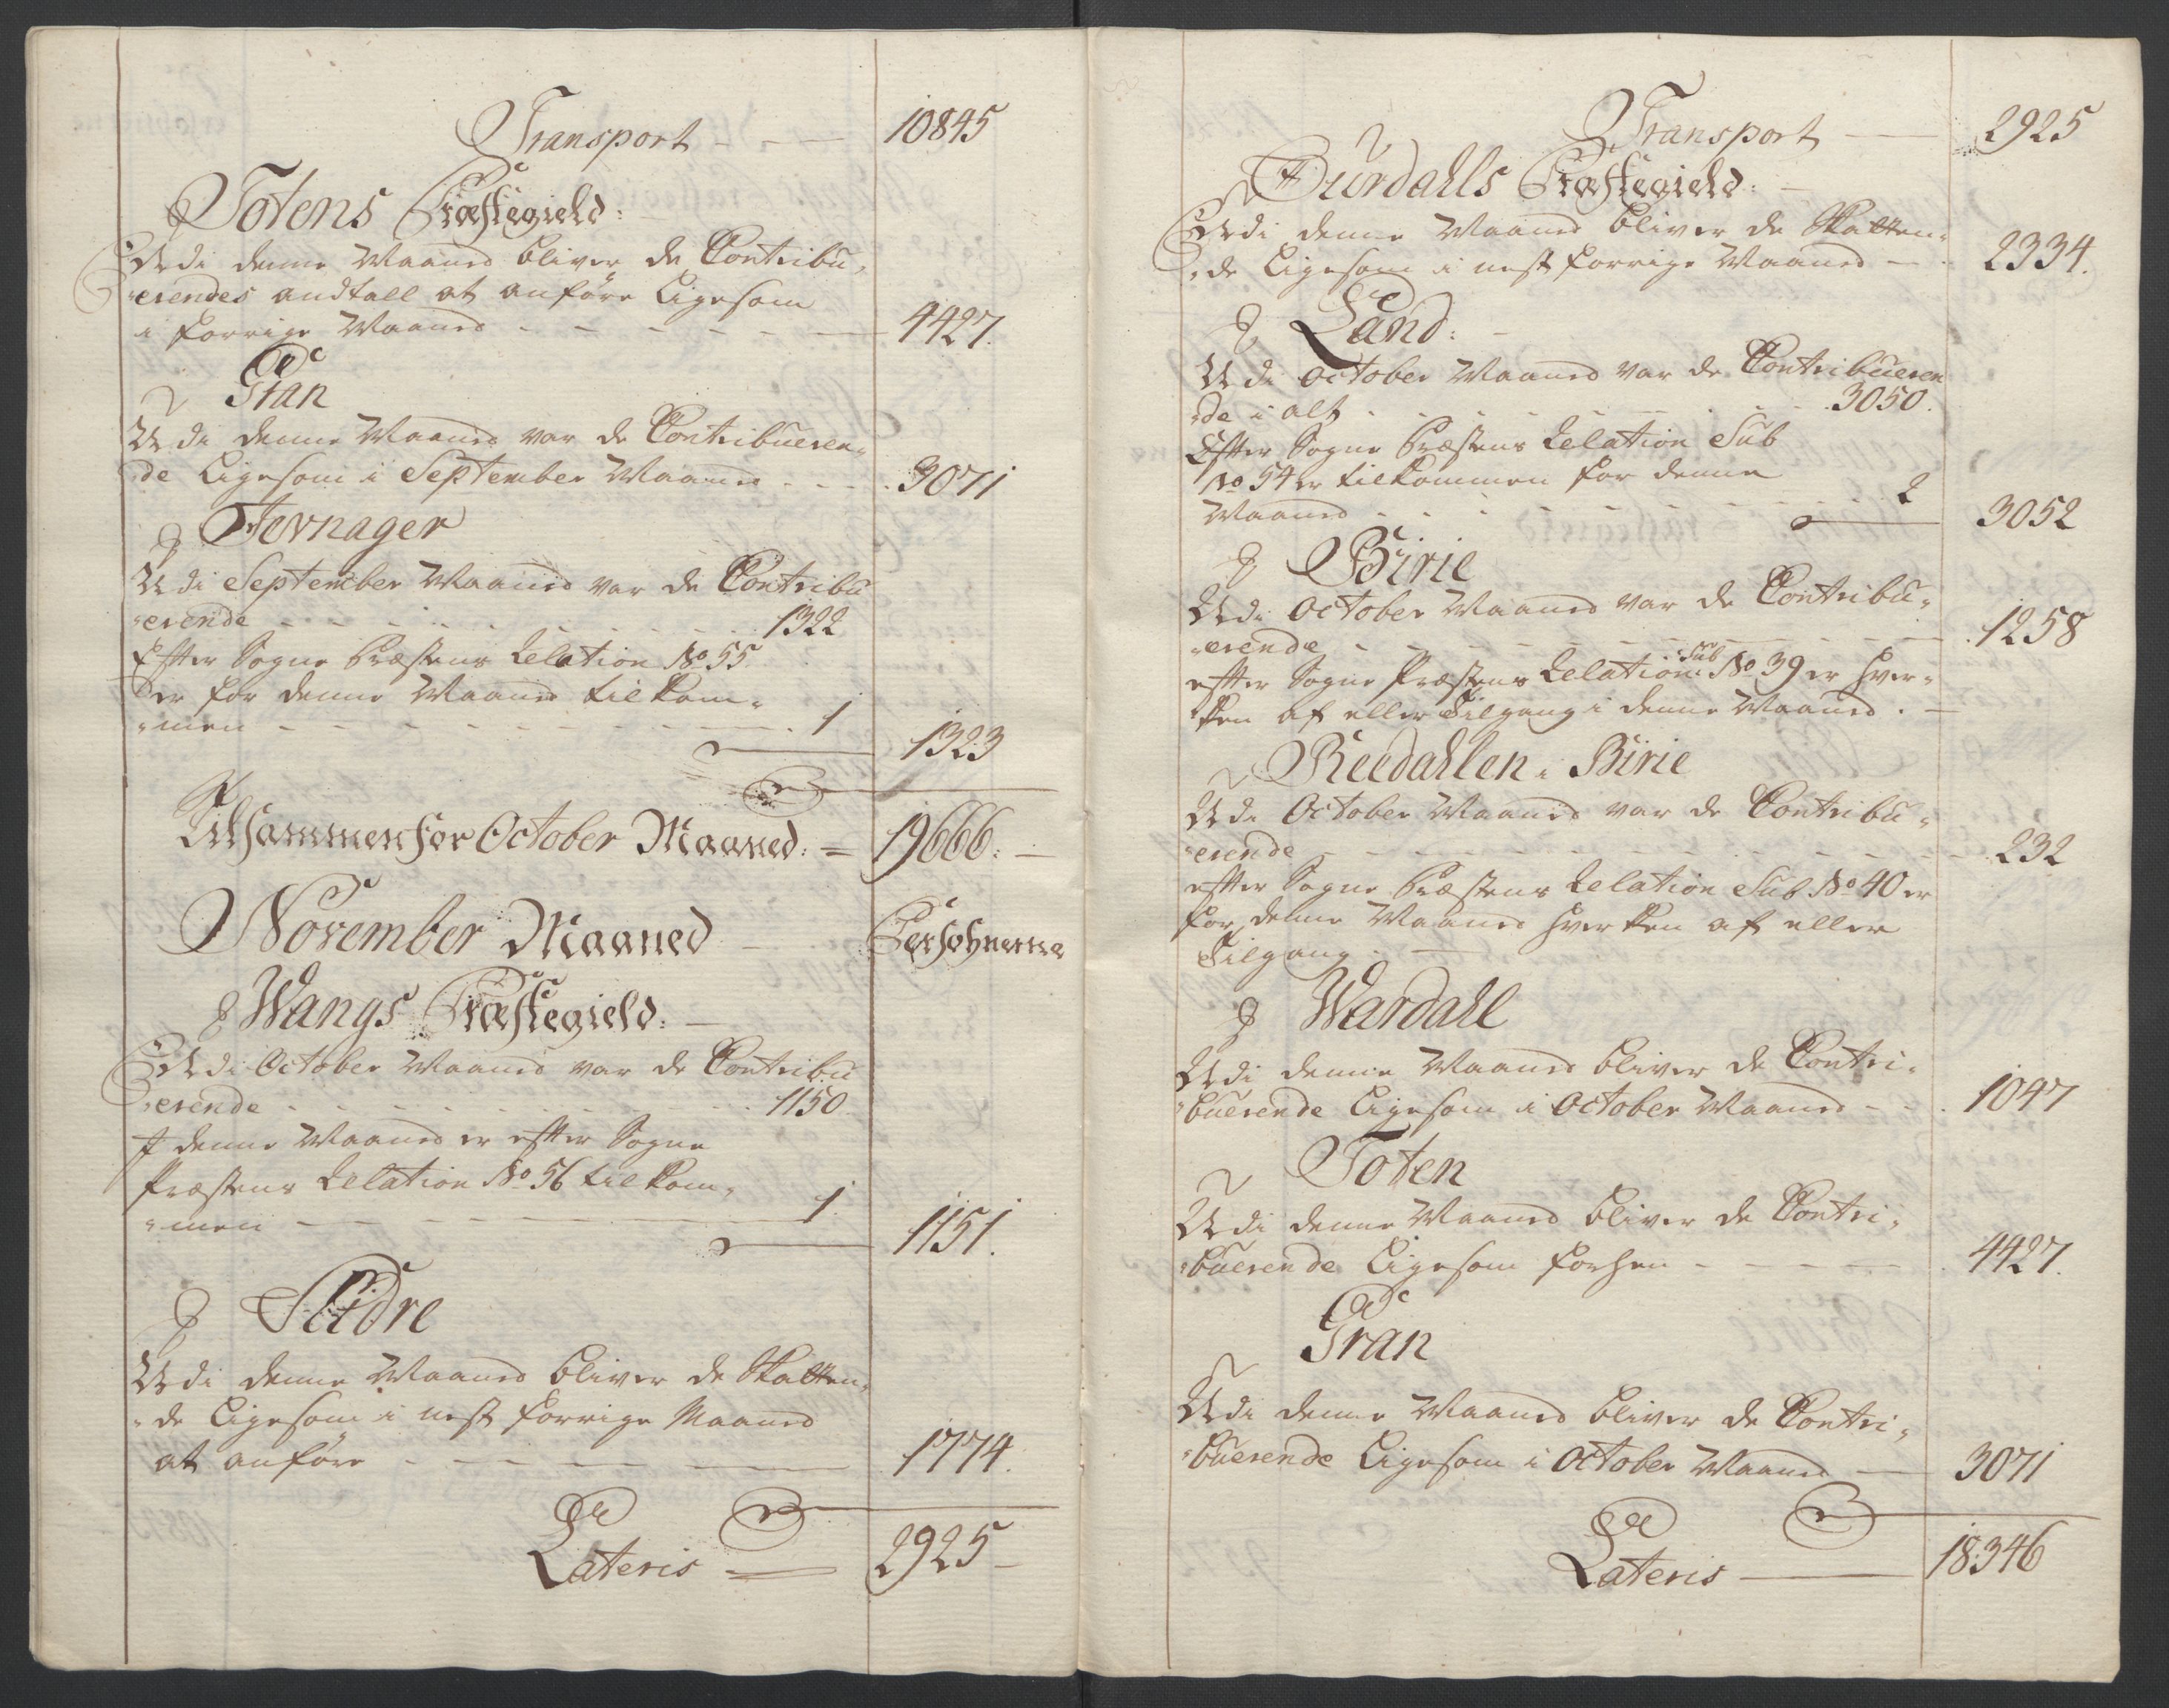 Transport - - — 10845
Totens Præstegield:
Udi denne Maaned bliver de Contribu,
,erendes andtall at anføre Ligesom
i forrige Maaned - - - - - — 4427.
Gran
Udi denne Maaned var de Contribueren,
de Ligesom i September Maaned - - - 3071
Jevnager
Udi September Maaned var de Contribu
,erende - - - - - - 1322
Efter Sogne Præstens Relation No 55
er for denne Maaned tilkom,
,men - - - - - - - 1
1323
Tilsammen for October Maaned: = 19666: —
November Maaned — Persohnerne
Wangs Præstegield: —
Udi October Maaned var de Contribu
,erende - - - - - - 1150
I denne Maaned er efter Sogne
Præstens Relation No 56 tilkom,
,men - - - - - — 1.
1151.
Slidre
Udi denne Maaned bliver de Skatten,
,de Ligesom i nest forrige Maaned
at anføre - - - - — 1774.
Lateris = 2925 —
Transport — 2925
Hurdahls Præstegield: —
Udi denne Maaned bliver de Skatten,
,de Ligesom i nest forrige Maaned — 2334.
Land: —
Udi October Maaned var de Contribueren
,de i alt - - - - - - 3050.
Efter Sogne Præstens Relation Sub
No 54 er tilkommen for denne
Maaned - - - - - - 2
3052
Birie
Udi October Maaned var de Contribu,
,erende - - - - - - - 1258
efter Sogne Præstens Relation Sub No 39 er hver,
ken af eller Tilgang i denne Maaned. —
Reedahlen i Birie
Udi October Maaned var de Contribu,
,erende - - - - - - - 232
efter Sogne Præstens Relation Sub No 40 er
for denne Maaned hverken af eller
Tilgang. —
Wardahl
Udi denne Maaned bliver de Contri,
,buerende Ligesom i October Maaned - - 1047
Toten
Udi denne Maaned bliver de Contri,
,buerende Ligesom forhen - - - - 4427.
Gran
Udi denne Maaned bliver de Contri,
,buerende Ligesom i October Maaned — 3071
Lateris — 18346